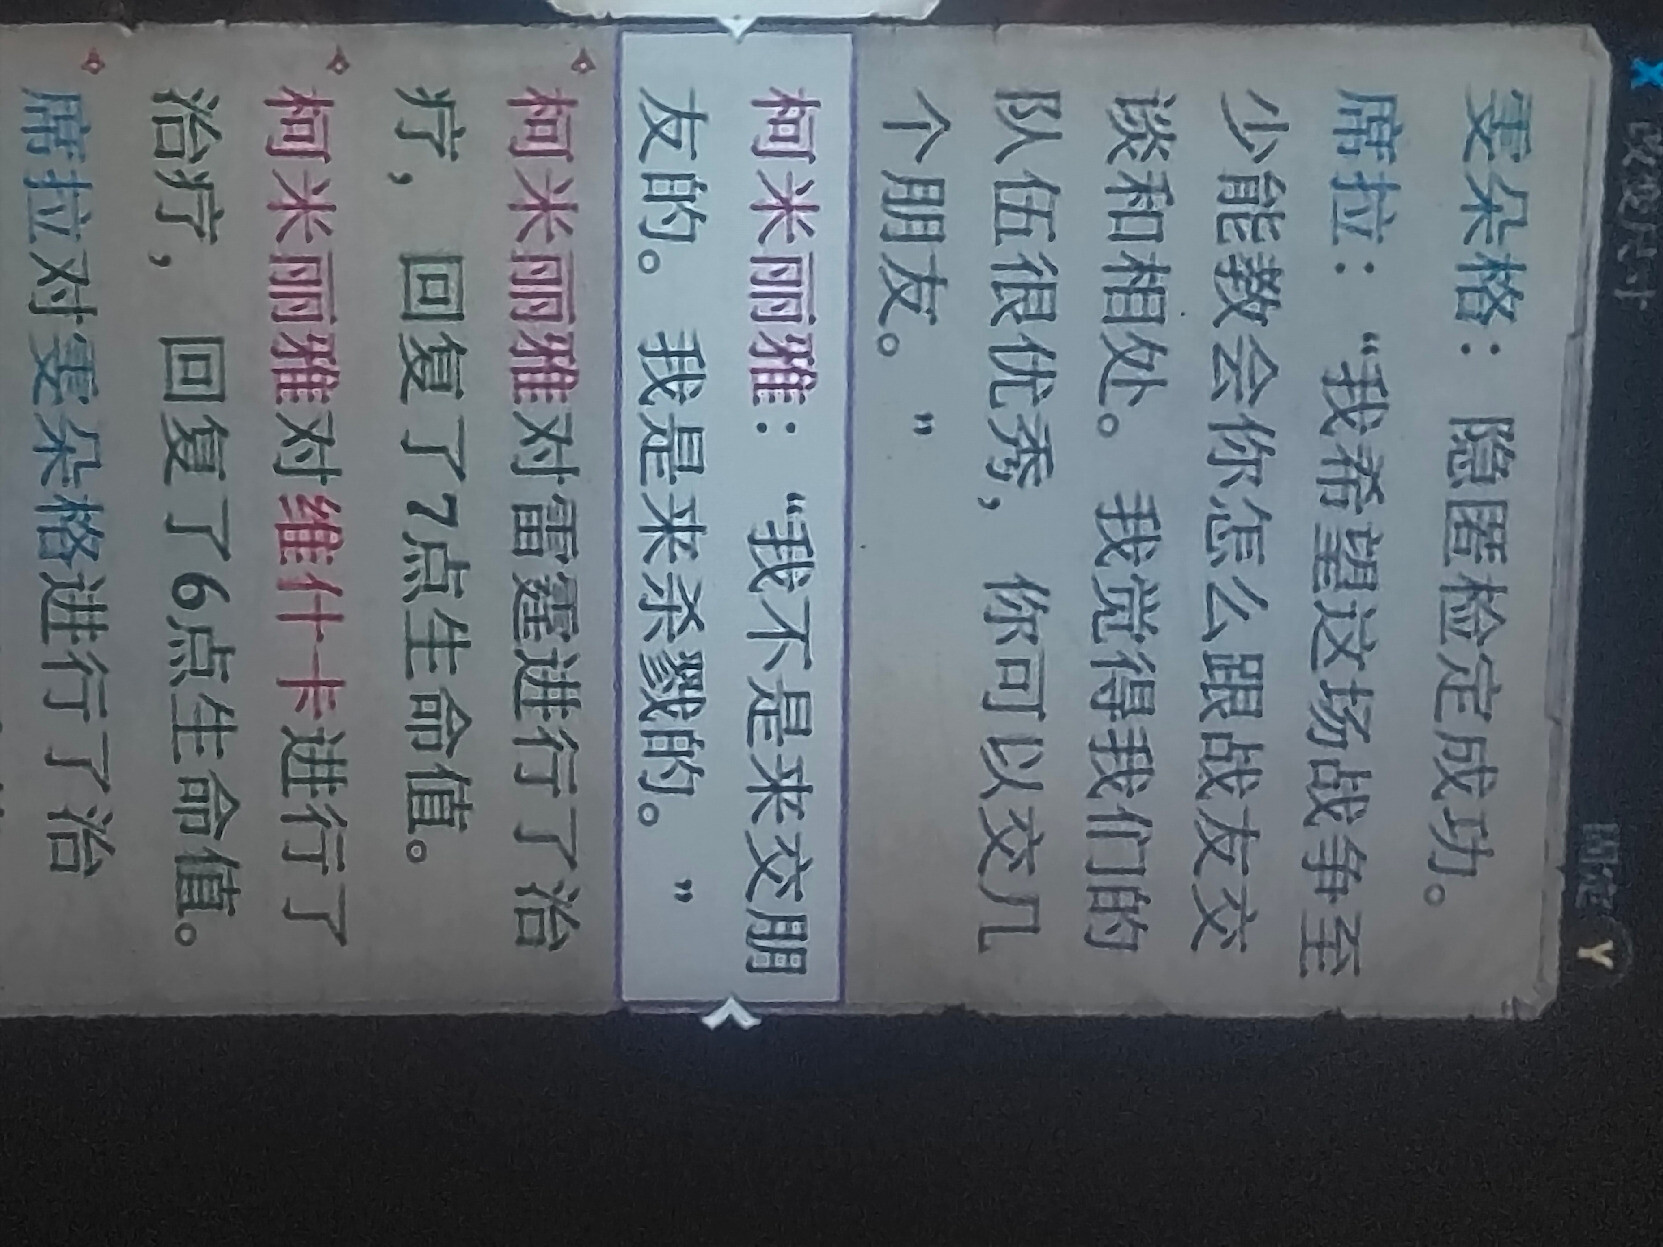 改变尺寸
固定 Y
雯朵格： 隐匿检定成功。
席拉： “我希望这场战争至
少能教会你怎么跟战友交
谈和相处。 我觉得我们的
队伍很优秀， 你可以交几
个朋友。 ”
柯米丽雅： “我不是来交朋
友的。 我是来杀戮的。 ”
柯米丽雅对雷霆进行了治
疗， 回复了7点生命值。
柯米丽雅对维什卡进行了
治疗， 回复了6点生命值。
席拉对雯朵格进行了治